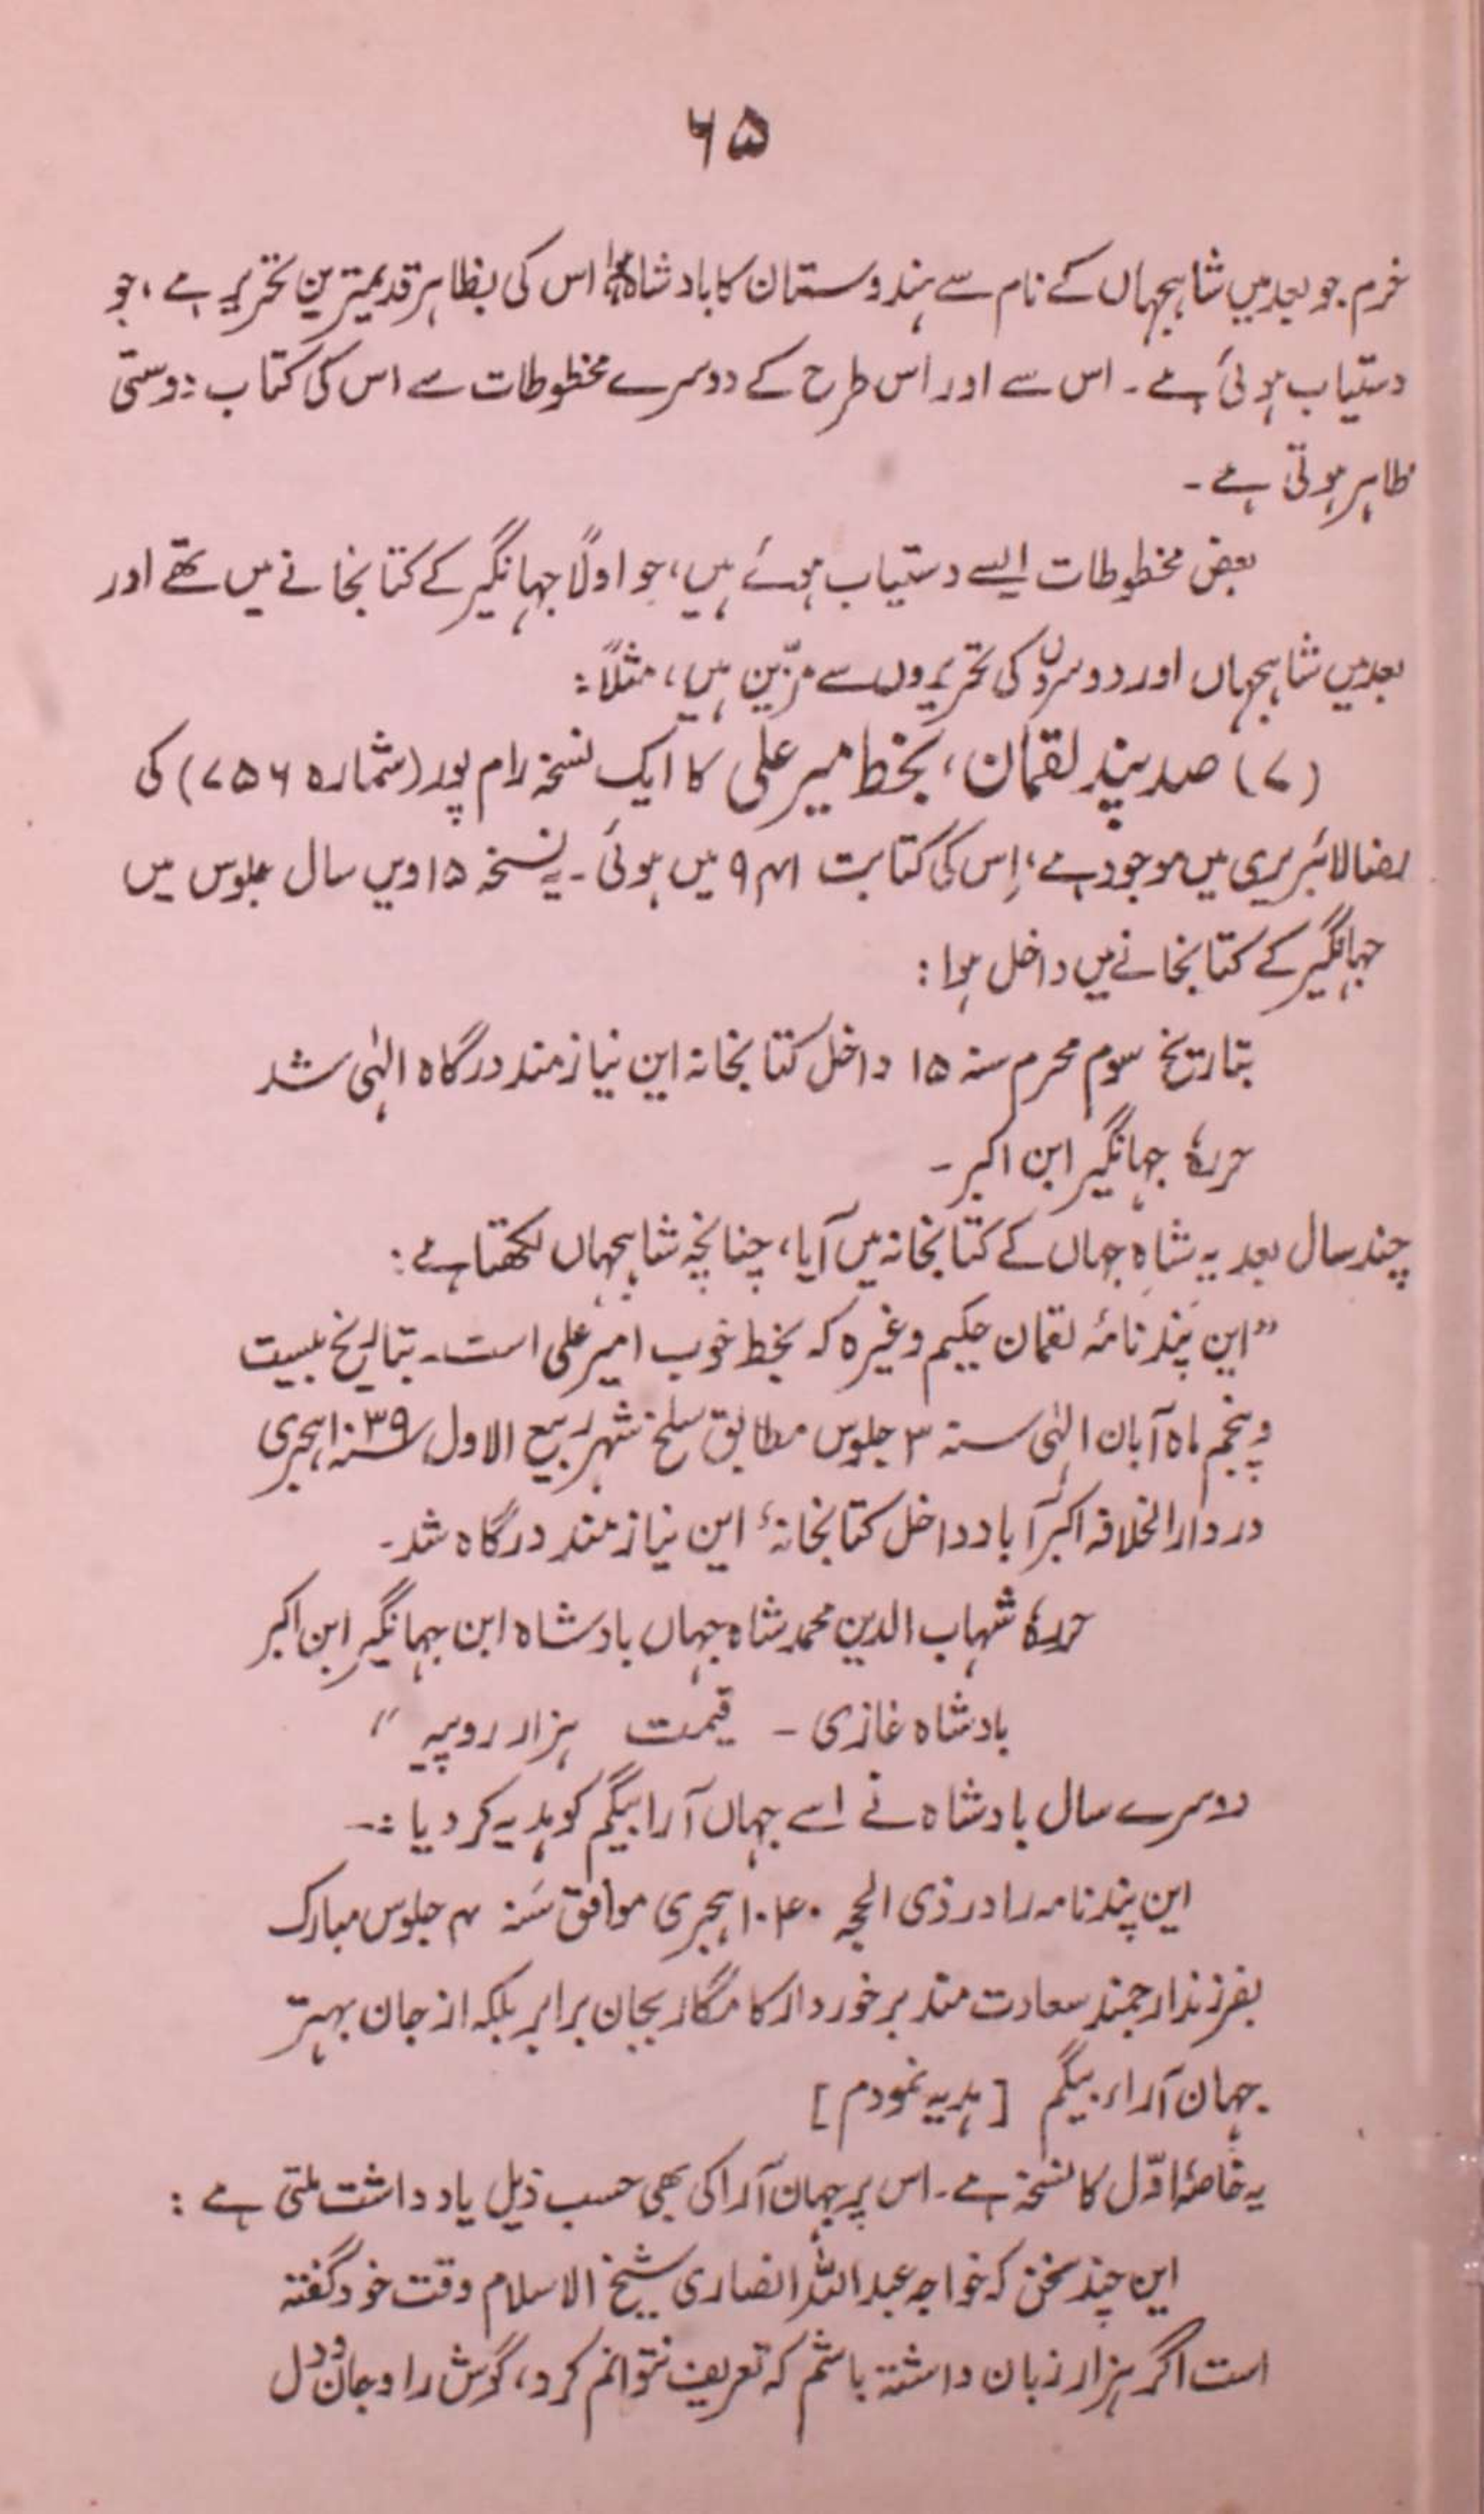 ۶۵
خرم جو بعد میں شاہجہاں کے نام سے ہندوستان کا بادشاہ ہوا اس کی بظاہر قدیمترین تحریر ہے، جو
دستیاب ہوئی ہے۔ اس سے اور اس طرح کے دوسرے مخطوطات سے اس کی کتاب دوستی
ظاہر ہوتی ہے۔
بعض مخطوطات ایسے دستیاب ہوئے ہیں، جو اولًا جہانگیر کے کتابخانے میں تھے اور
بعد میں شاہجہاں اور دوسروں کی تحریروں سے مزّین ہیں، مثلًا:
(۷) صد پند لقمان، بخط میر علی کا ایک نسخہ رام پور (شمارہ ۷۵۶) کی
رضا لائبریری میں موجود ہے، اِس کی کتابت ۹۴۱ میں ہوئی۔ یہ نسخہ ۱۵ ویں سال جلوس میں
جہانگیر کے کتابخانے میں داخل ہوا:
بتاریخ سوم محرم سنہ ۱۵ داخل کتابخانہ این نیازمند درگاہ الٰہی شد
حررہٗ جہانگیر ابن اکبر۔
چند سال بعد یہ شاہِ جہاں کے کتابخانہ میں آیا، چنانچہ شاہجہاں لکھتا ہے:
"این پَند نامۂ لقمان حکیم وغیرہ کہ بخط خوب امیر علی است۔ بتاریخ بیست
و پنجم ماہ آبان الٰہی سنہ ۳ جلوس مطابق سلخ شہر ربیع الاول سنہ ۱۰۳۹ ہجری
در دارالخلافہ اکبرآباد داخل کتابخانۂ این نیازمند درگاہ شد۔
حررہٗ شہاب الدین محمد شاہ جہاں بادشاہ ابن جہانگیر ابن اکبر
بادشاہ غازی ۔ قیمت ہزار روپیہ"
دوسرے سال بادشاہ نے اسے جہاں آرا بیگم کو ہدیہ کر دیا :۔
این پندنامہ را در ذی الحجہ ۱۰۴۰ ہجری موافق سَنہ ۴ جلوس مبارک
بفرزند ارجمند سعادت مند برخوردار کامگار بجان برابر بلکہ از جان بہتر
جہان آراء بیگم [ہدیہ نمودم]
یہ خاصۂ اوّل کا نسخہ ہے۔ اس پر جہان آرا کی بھی حسب ذیل یادداشت ملتی ہے:
این چند سخن کہ خواجہ عبداللہ انصاری شیخ الاسلام وقت خود گفتہ
است اگر ہزار زبان داشتہ باشم کہ تعریف نتوانم کرد، گوش را و جان و دل